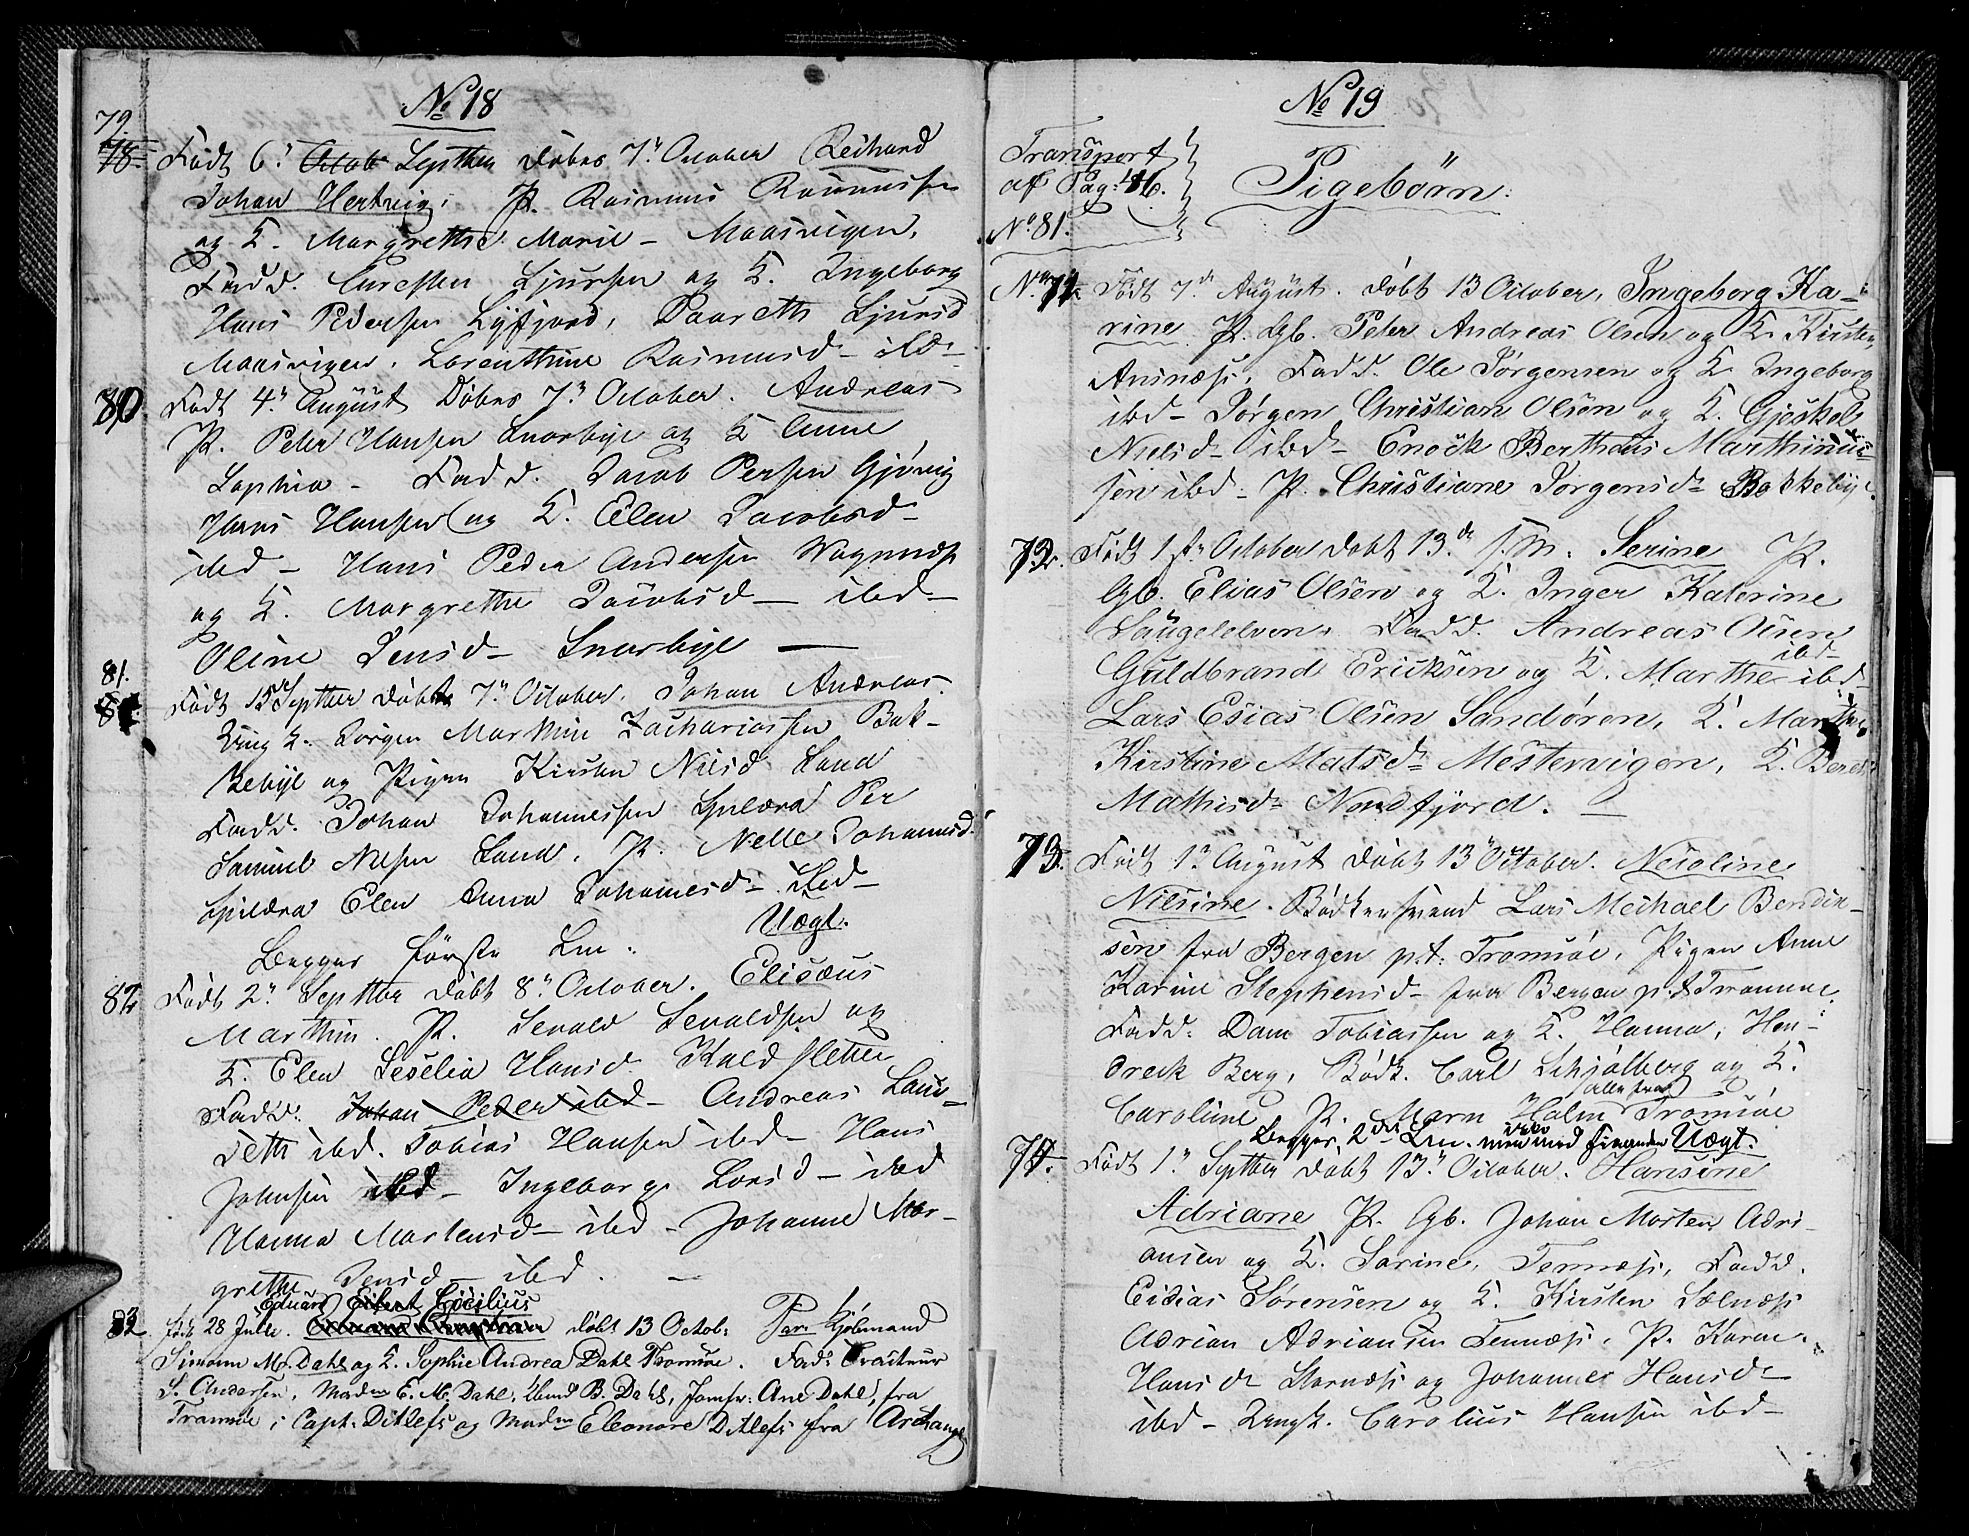 No 18
79.
78. Født 6. Octob Septher Døbes 7. October Reihard
Johan Hertvig. P. Rasmus Rasmussen
og K. Margrethe Marie - Maasvigen.
Fadd. Ljursen og K. Ingeborg
Hans Pedersen Lyfjord, Ljursd
Maasvigen. Lorenthine Rasmusd - ibd -
80. Født 4. August Døbes 7. October. Andreas
P. Peter Hansen Snarbye og K Anne
Sophia - Fadd. Jacob Persen Gjøvig
Hans Hansen og K. Elen Jacobsd -
ibd - Hans Peder Andersen Vognnæs
og K. Margrethe Jacobsd - ibd -
Oline Jensd - Snarbye -
81. Født 15 Septher døbt 7. October. Johan Andreas.
Ung K. Jørgen Marthin Zachariassen Bak-
kebye og Pigen Kirsten Nilsd Lund
Fadd. Johan Johannessen Spildra Per
Samuel Nilsen Lund. P. Nelle Johannesd.
Spildra Elen Anna Johannesd - ibd -
Begges første Lm. Uægt.
82 Født 2. Septher døbt 8. October. Elisæus
Marthin. P. Sevald Sevaldsen og
K. Elen Seselia Hansd. Kaldsletten
Fadd. Johan Peder ibd - Andreas Lauv-
seth ibd. Tobias Hansen ibd - Hans
Johnsen ibd - Ingeborg Larsd - ibd
Hanna Mortensd - ibd - Johanna Mar-
grethe Jensd - ibd. -
Eduard Eilert Cecilius
83. født 28 Julii. døbt 13 Octob: Par: Kjøbmand
Simonn M. Dahl og K. Sophie Andrea Dahl Tromsøe. Fad: Traiteur
S. Andersen, Madm E. M. Dahl, B. Dahl, Jomfr: Ane Dahl, fra
Tromsøe; Capt. Ditlefs og Madm Eleonore Ditlefs fra Archangel
No 19
Transport
af Pag: 16.
No 81.
Pigebørn.
No 71. Født 7de August. døbt 13 October, Ingeborg Ka-
rine P. Gb. Peter Andreas Olsen og K. Kirsten
Ansnæs, Fadd. Ole Jørgensen og K. Ingeborg
ibd - Jørgen Christian Olsen og K. Gjeskel
Nielsd - ibd - Enock Berthæus Marthinus-
sen ibd - P. Christiane Jørgensd - Bakkebye.
72. Født 1ste October døbt 13de s.M. Serine P.
Gb. Elias Olsen og K. Inger Katerine
Laugelelven. Fadd. Andreas Olsen
ibd -
Guldbrand Ericksen og K. Marthe ibd -
Lars Esias Olsen Sandøren, K. Marthe
Kirstine Matsd - Mestervigen, K. Beret
Mathisd - Nordfjord. -
73. Født 1. August døbt 13 October. Nicoline
Nilsine. Bødkersvend Lars Meichael Bendix-
sen fra Bergen p.t. Tromsøe, Pigen Anne
Karine Stephensd - fra Bergen p.t Tromsøe.
Fadd. Dam Tobiassen og K. Hanna, Hen-
dreck Berg, Bødk. Carl Schjølberg og K.
Caroline, P. Maren Holm alle fra Tromsøe
Begges 2det Lm. men med Uægt.
74. Født 1. Septher døbt 13. October. Hansine
Adriane P. Gb. Johan Morten Adri-
ansen og K. Sarine, Tennæs, Fadd.
Esdias Sørensen og K. Kirsten Selnæs
Adrian Adriansen Tennæs. P. Karen
Hansd - Stornæs og Johannes Hansd -
ibd - Ungk. Carolius Hansen ibd -